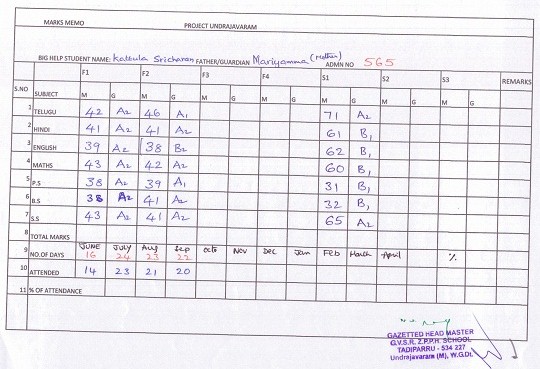 MARKS MEMO PROJECT UNDRAJAVARAM
BIG HELP STUDENT NAME: Kattula Sricharan FATHER/GUARDIAN Mariyamma (Mother) ADMN NO 565
F1 F2 F3 F4 S1 S2 S3 REMARKS
S.NO SUBJECT M G M G M G M G M G M G M G
1 TELUGU 42 A2 46 A1 71 A2
2 HINDI 41 A2 41 A2 61 B1
3 ENGLISH 39 A2 38 B2 62 B1
4 MATHS 43 A2 42 A2 60 B1
5 P.S 38 A2 39 A1 31 B1
6 B.S 38 A2 41 A2 32 B1
7 S.S 43 A2 41 A2 65 A2
8 TOTAL MARKS
JUNE JULY Aug Sep octo Nov Dec Jan Feb March April %
9 NO.OF DAYS 16 24 23 22
10 ATTENDED 14 23 21 20
11 % OF ATTENDANCE
GAZETTED HEAD MASTER
G.V.S.R. Z.P.P.H. SCHOOL
TADIPARRU - 534 227
Undrajavaram (M), W.G.Dt.